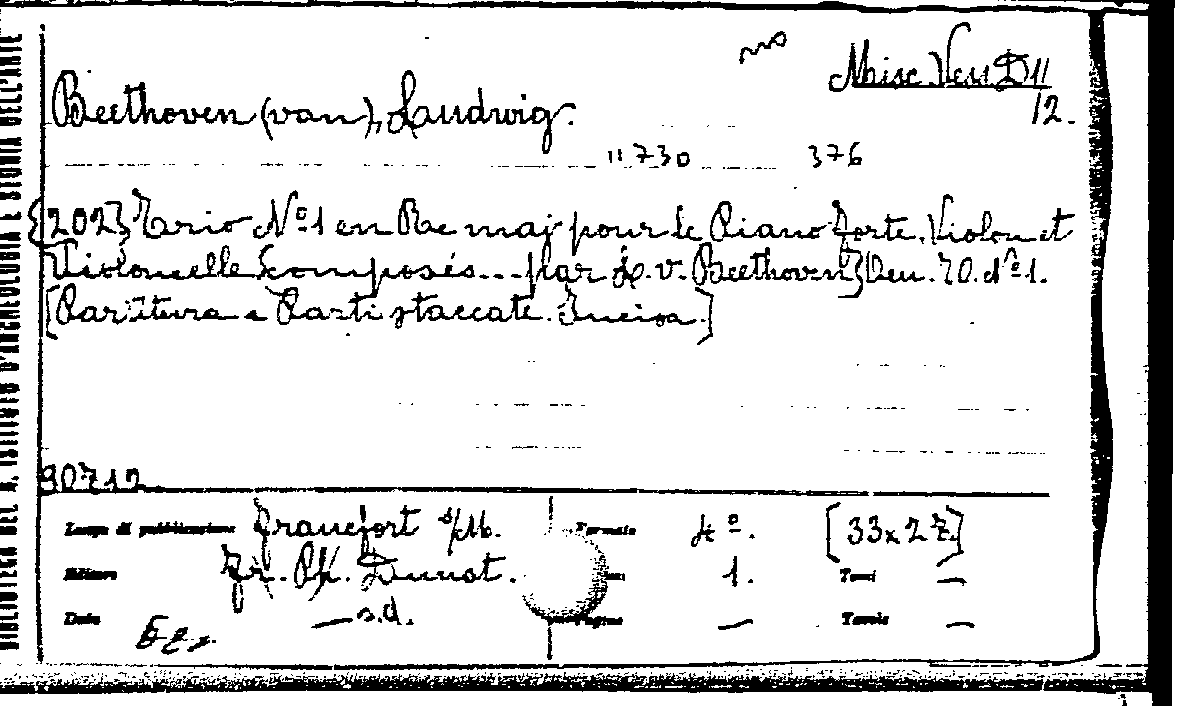 ms
Misc. Vess. D 11
12.
Beethoven (van), Laudwig.
11730 376
{202} Trio Nº 1 en Re maj pour le Piano forte, Violon et
Violoncelle Composés... par L. v. Beethoven} Oeu. 70. Nº 1.
[Partitura e Parti staccate. Incisa.]
90712
Luogo di pubblicazione Francfort s/M. Formato 4º. [33x27]
Editore Fr. Ph. Dunst. 1. Tomi —
Data — s.d. Pagine — Tavole —
BIBLIOTECA DEL R. ISTITUTO D'ARCHEOLOGIA E STORIA DELL'ARTE